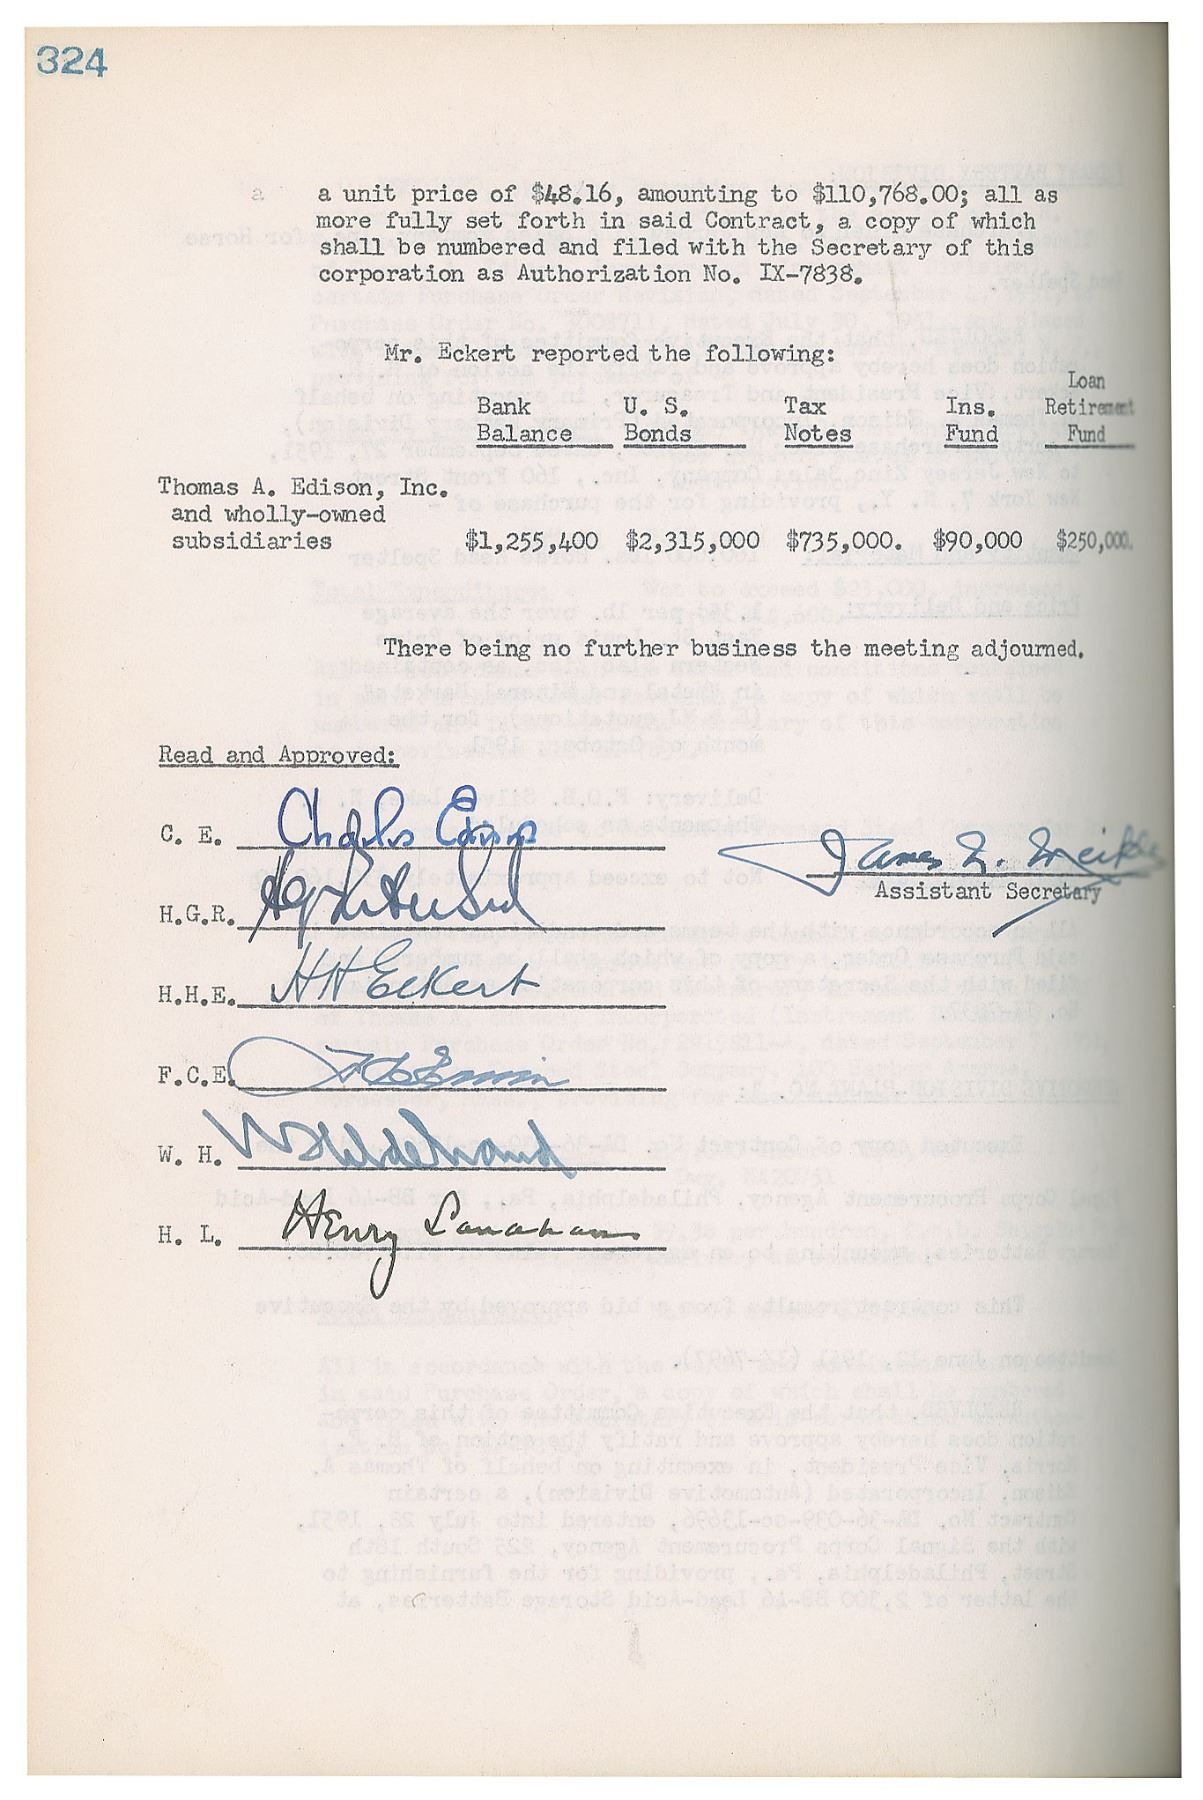 324
a unit price of $48.16, amounting to $110,768.00; all as
more fully set forth in said Contract, a copy of which
shall be numbered and filed with the Secretary of this
corporation as Authorization No. IX-7838.
Mr. Eckert reported the following:
Loan
Bank U. S. Tax Ins. Retirement
Balance Bonds Notes Fund Fund
Thomas A. Edison, Inc.
and wholly-owned
subsidiaries $1,255,400 $2,315,000 $735,000. $90,000 $250,000.
There being no further business the meeting adjourned.
Read and Approved:
C. E. Charles Edison
James L. Meikle
Assistant Secretary
H.G.R.
H.H.E. HH Eckert
F.C.E.
W. H. W Hildebrand
H. L. Henry Lanahan